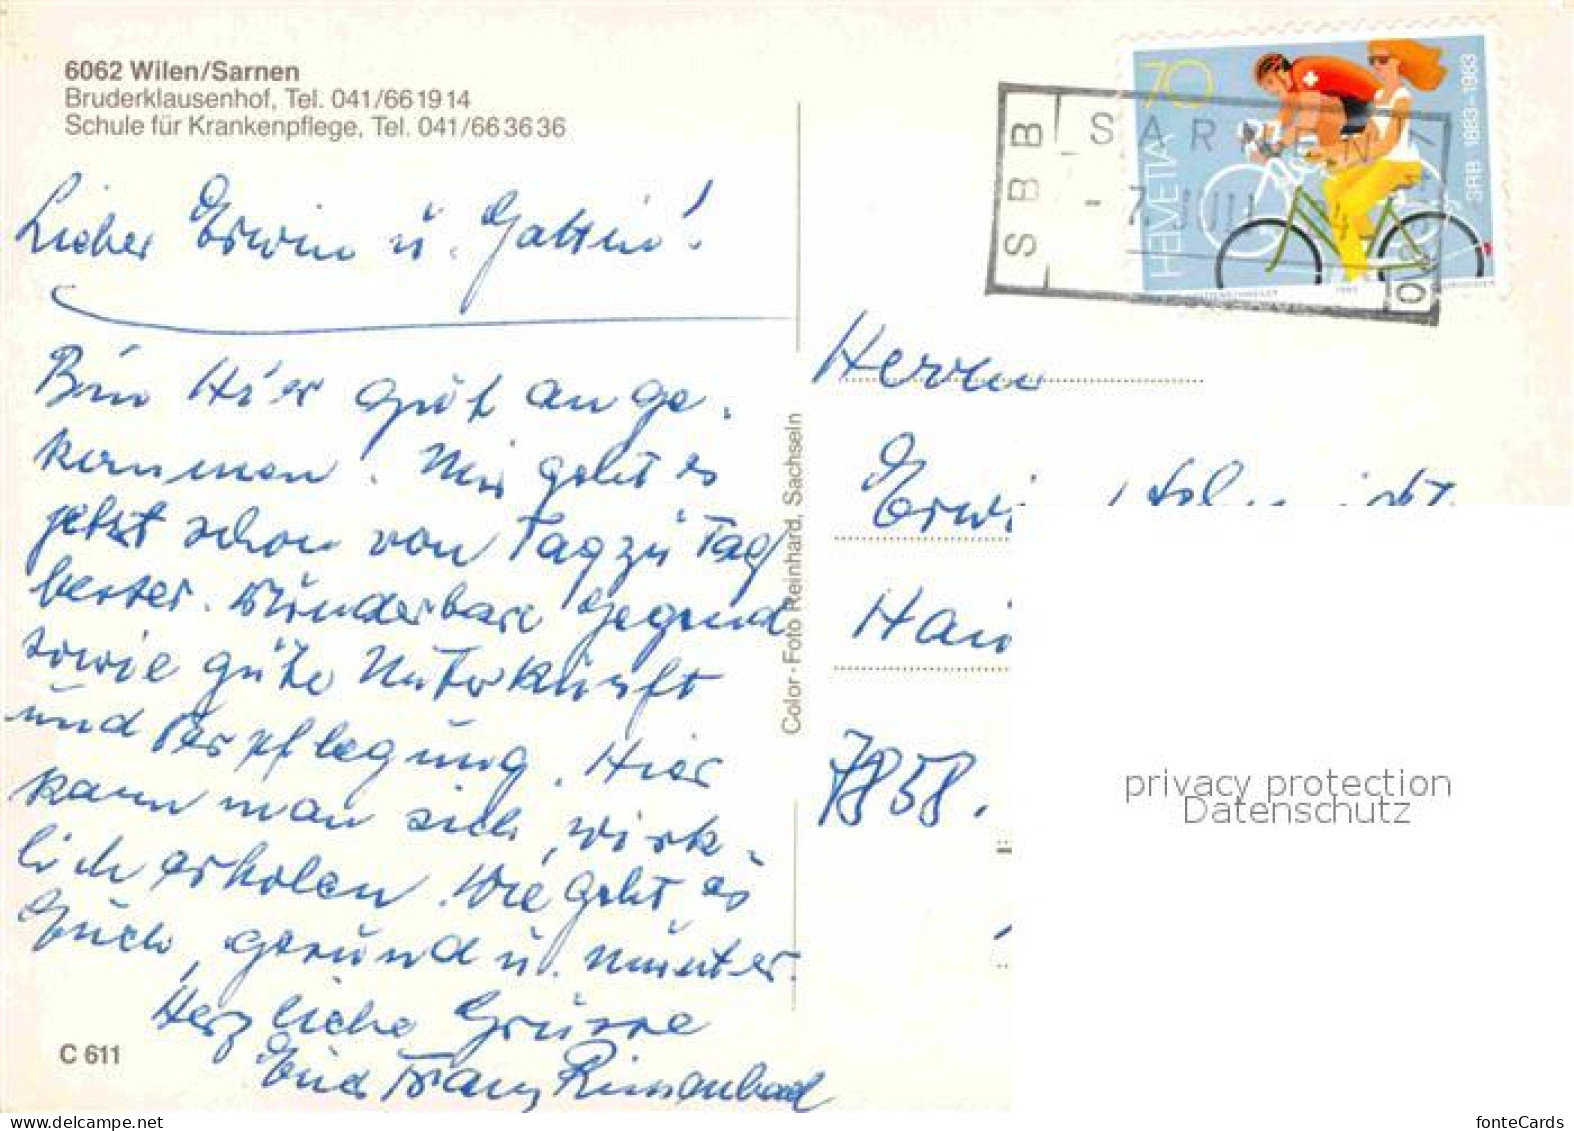 6062 Wilen/Sarnen
Bruderklausenhof, Tel. 041/661914
Schule für Krankenpflege, Tel. 041/663636
Lieber Erwin u. Gattin!
Bin Hier gut ange-
kommen. Mir geht es
jetzt schon von Tag zu Tag
besser. Wunderbare Gegend
sowie gute Unterkunft
und Verpflegung. Hier
kann man sich wirk-
lich erholen. Wie geht es
Euch, gesund u. munter.
Herzliche Grüsse
Euer Franz
C 611
Color - Foto Reinhard, Sachseln
70
HELVETIA
SRB 1883-1983
SBB
SARNEN
- 7. JUII
Herrn
7858.
privacy protection
Datenschutz
fonteCards